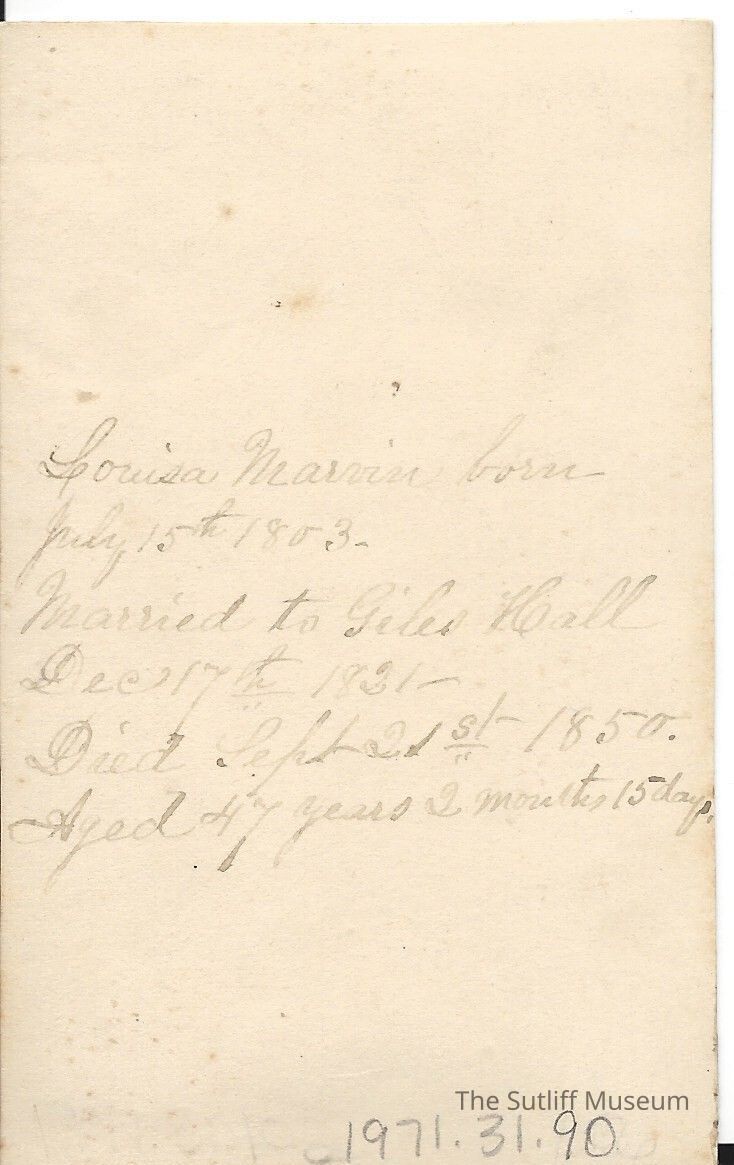 Louisa Marvin born
July 15th 1803.
Married to Giles Hall
Dec 17th 1821
Died Sept 21st 1850.
Aged 47 years 2 months 15 days.
The Sutliff Museum
1971.31.90